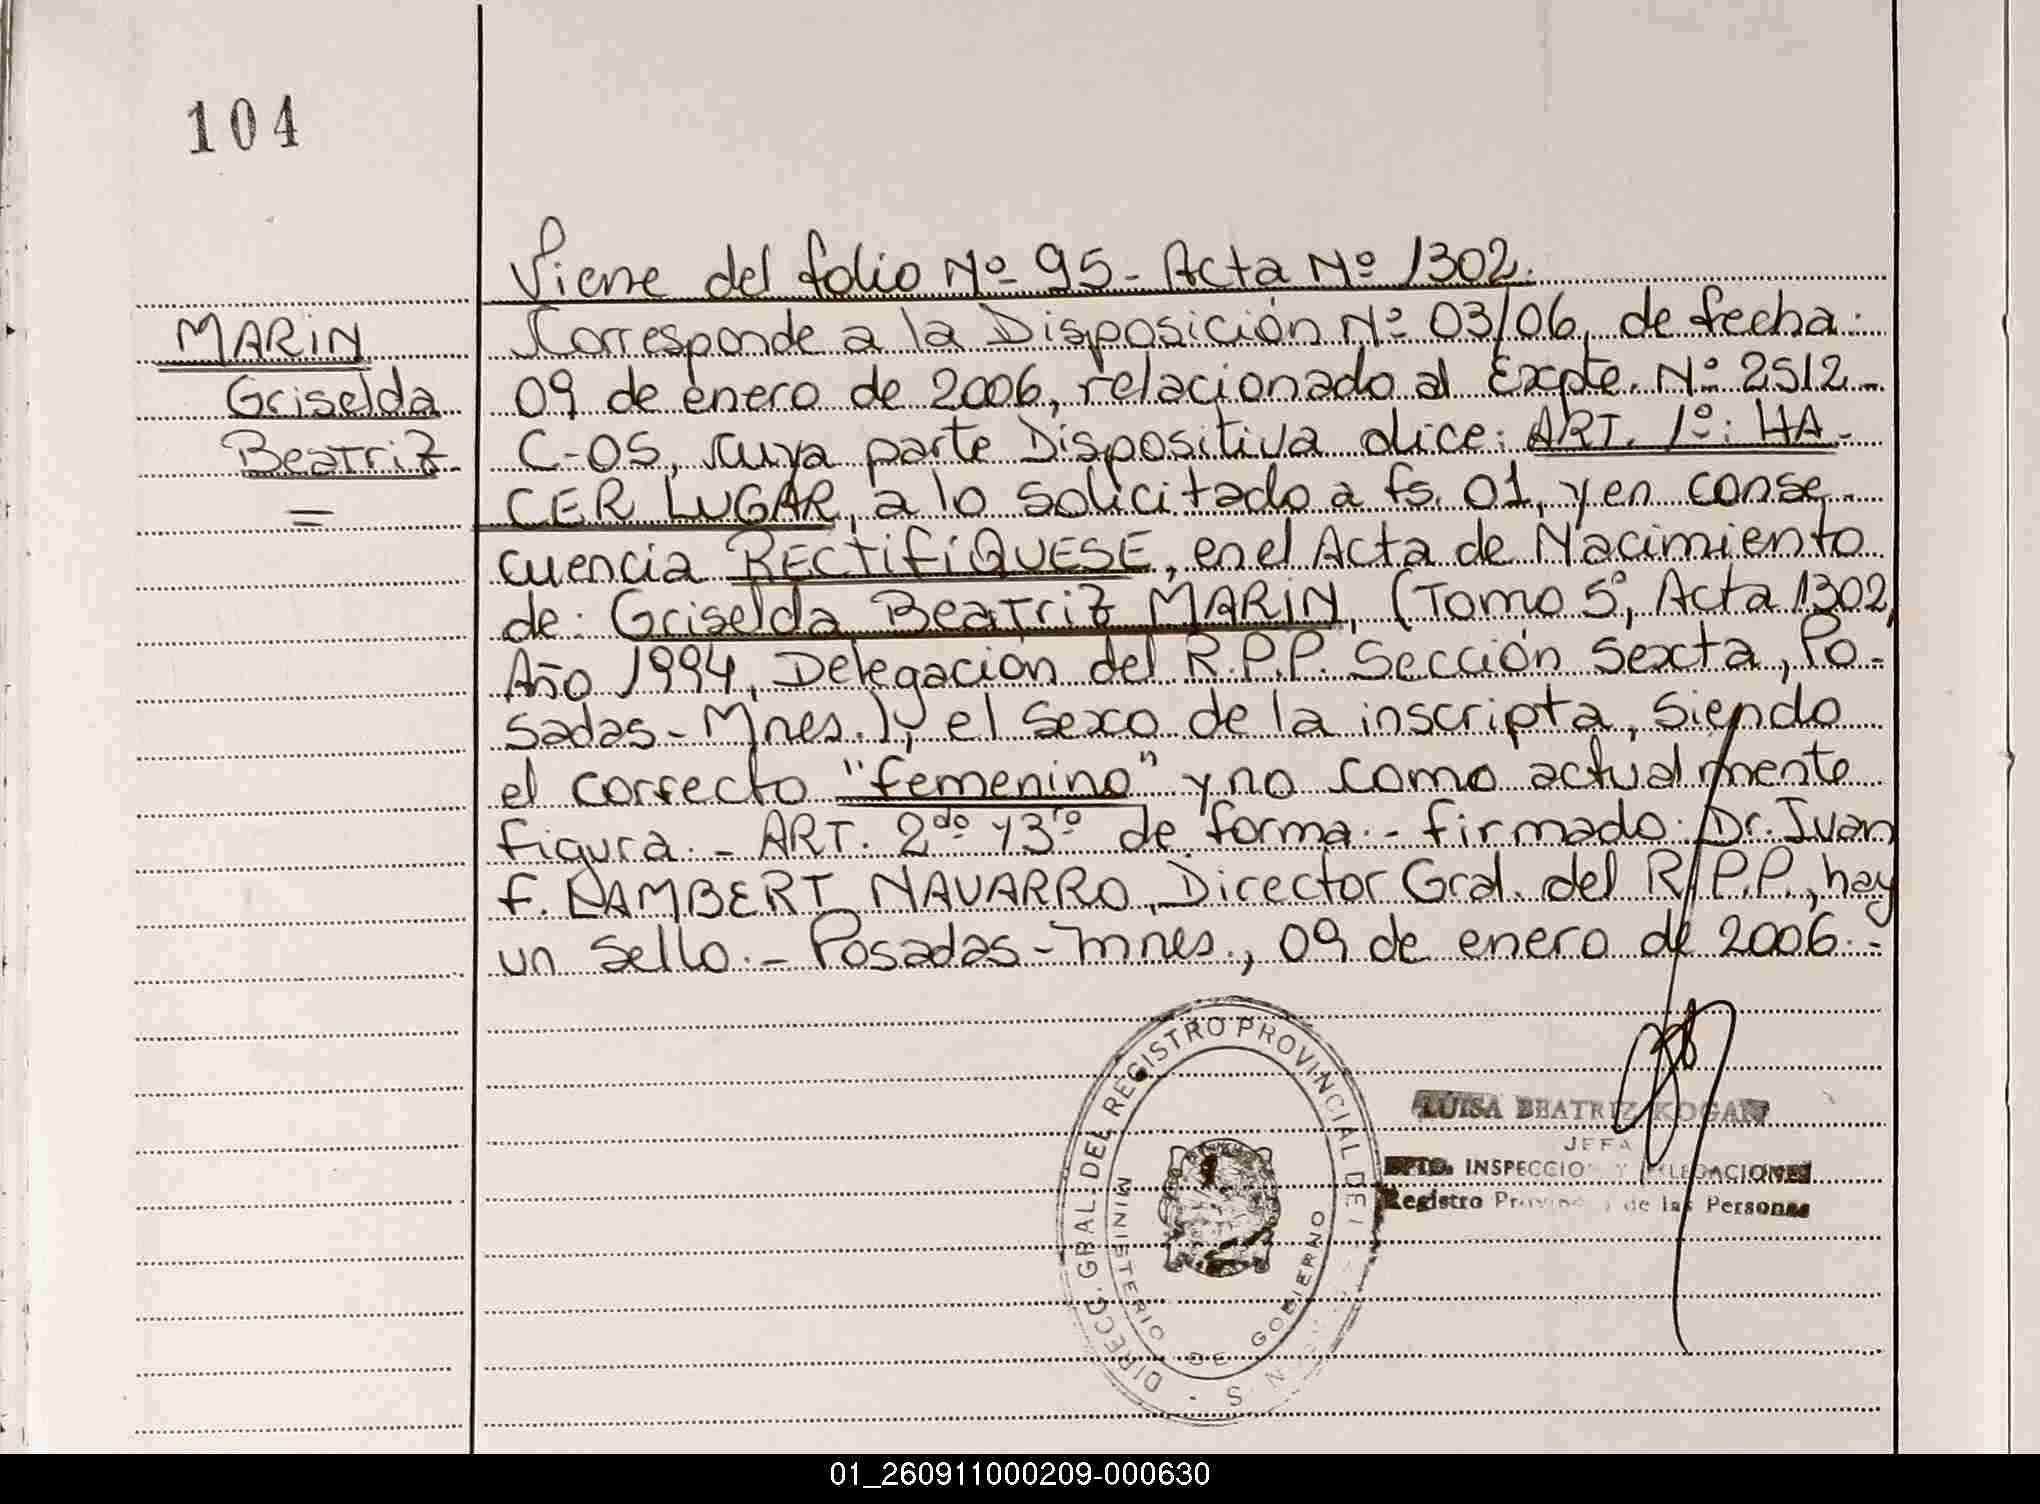 104
Viene del folio Nº 95 - Acta Nº 1302.
MARIN
Griselda
Beatriz
=
Corresponde a la Disposición Nº 03/06, de fecha:
09 de enero de 2006, relacionado al Expte. Nº 2512-
C-05, cuya parte Dispositiva dice: ART. 1º: HA-
CER LUGAR, a lo solicitado a fs. 01, y en conse-
cuencia RECTIFIQUESE, en el Acta de Nacimiento
de: Griselda Beatriz MARIN, (Tomo 5º, Acta 1302,
Año 1994, Delegación del R.P.P. Sección Sexta, Po-
sadas - Mnes.), el sexo de la inscripta, siendo
el correcto "femenino" y no como actualmente
figura. - ART. 2do y 3ro de forma. - firmado: Dr. Juan
F. LAMBERT NAVARRO, Director Gral. del R.P.P., hay
un sello. - Posadas - Mnes., 09 de enero de 2006. -
DIRECC. GRAL. DEL REGISTRO PROVINCIAL DE
MINISTERIO DE GOBIERNO
LUISA BEATRIZ KOGAN
JEFA
DPTO. INSPECCION Y DELEGACIONES
Registro Provincial de las Personas
01_260911000209-000630